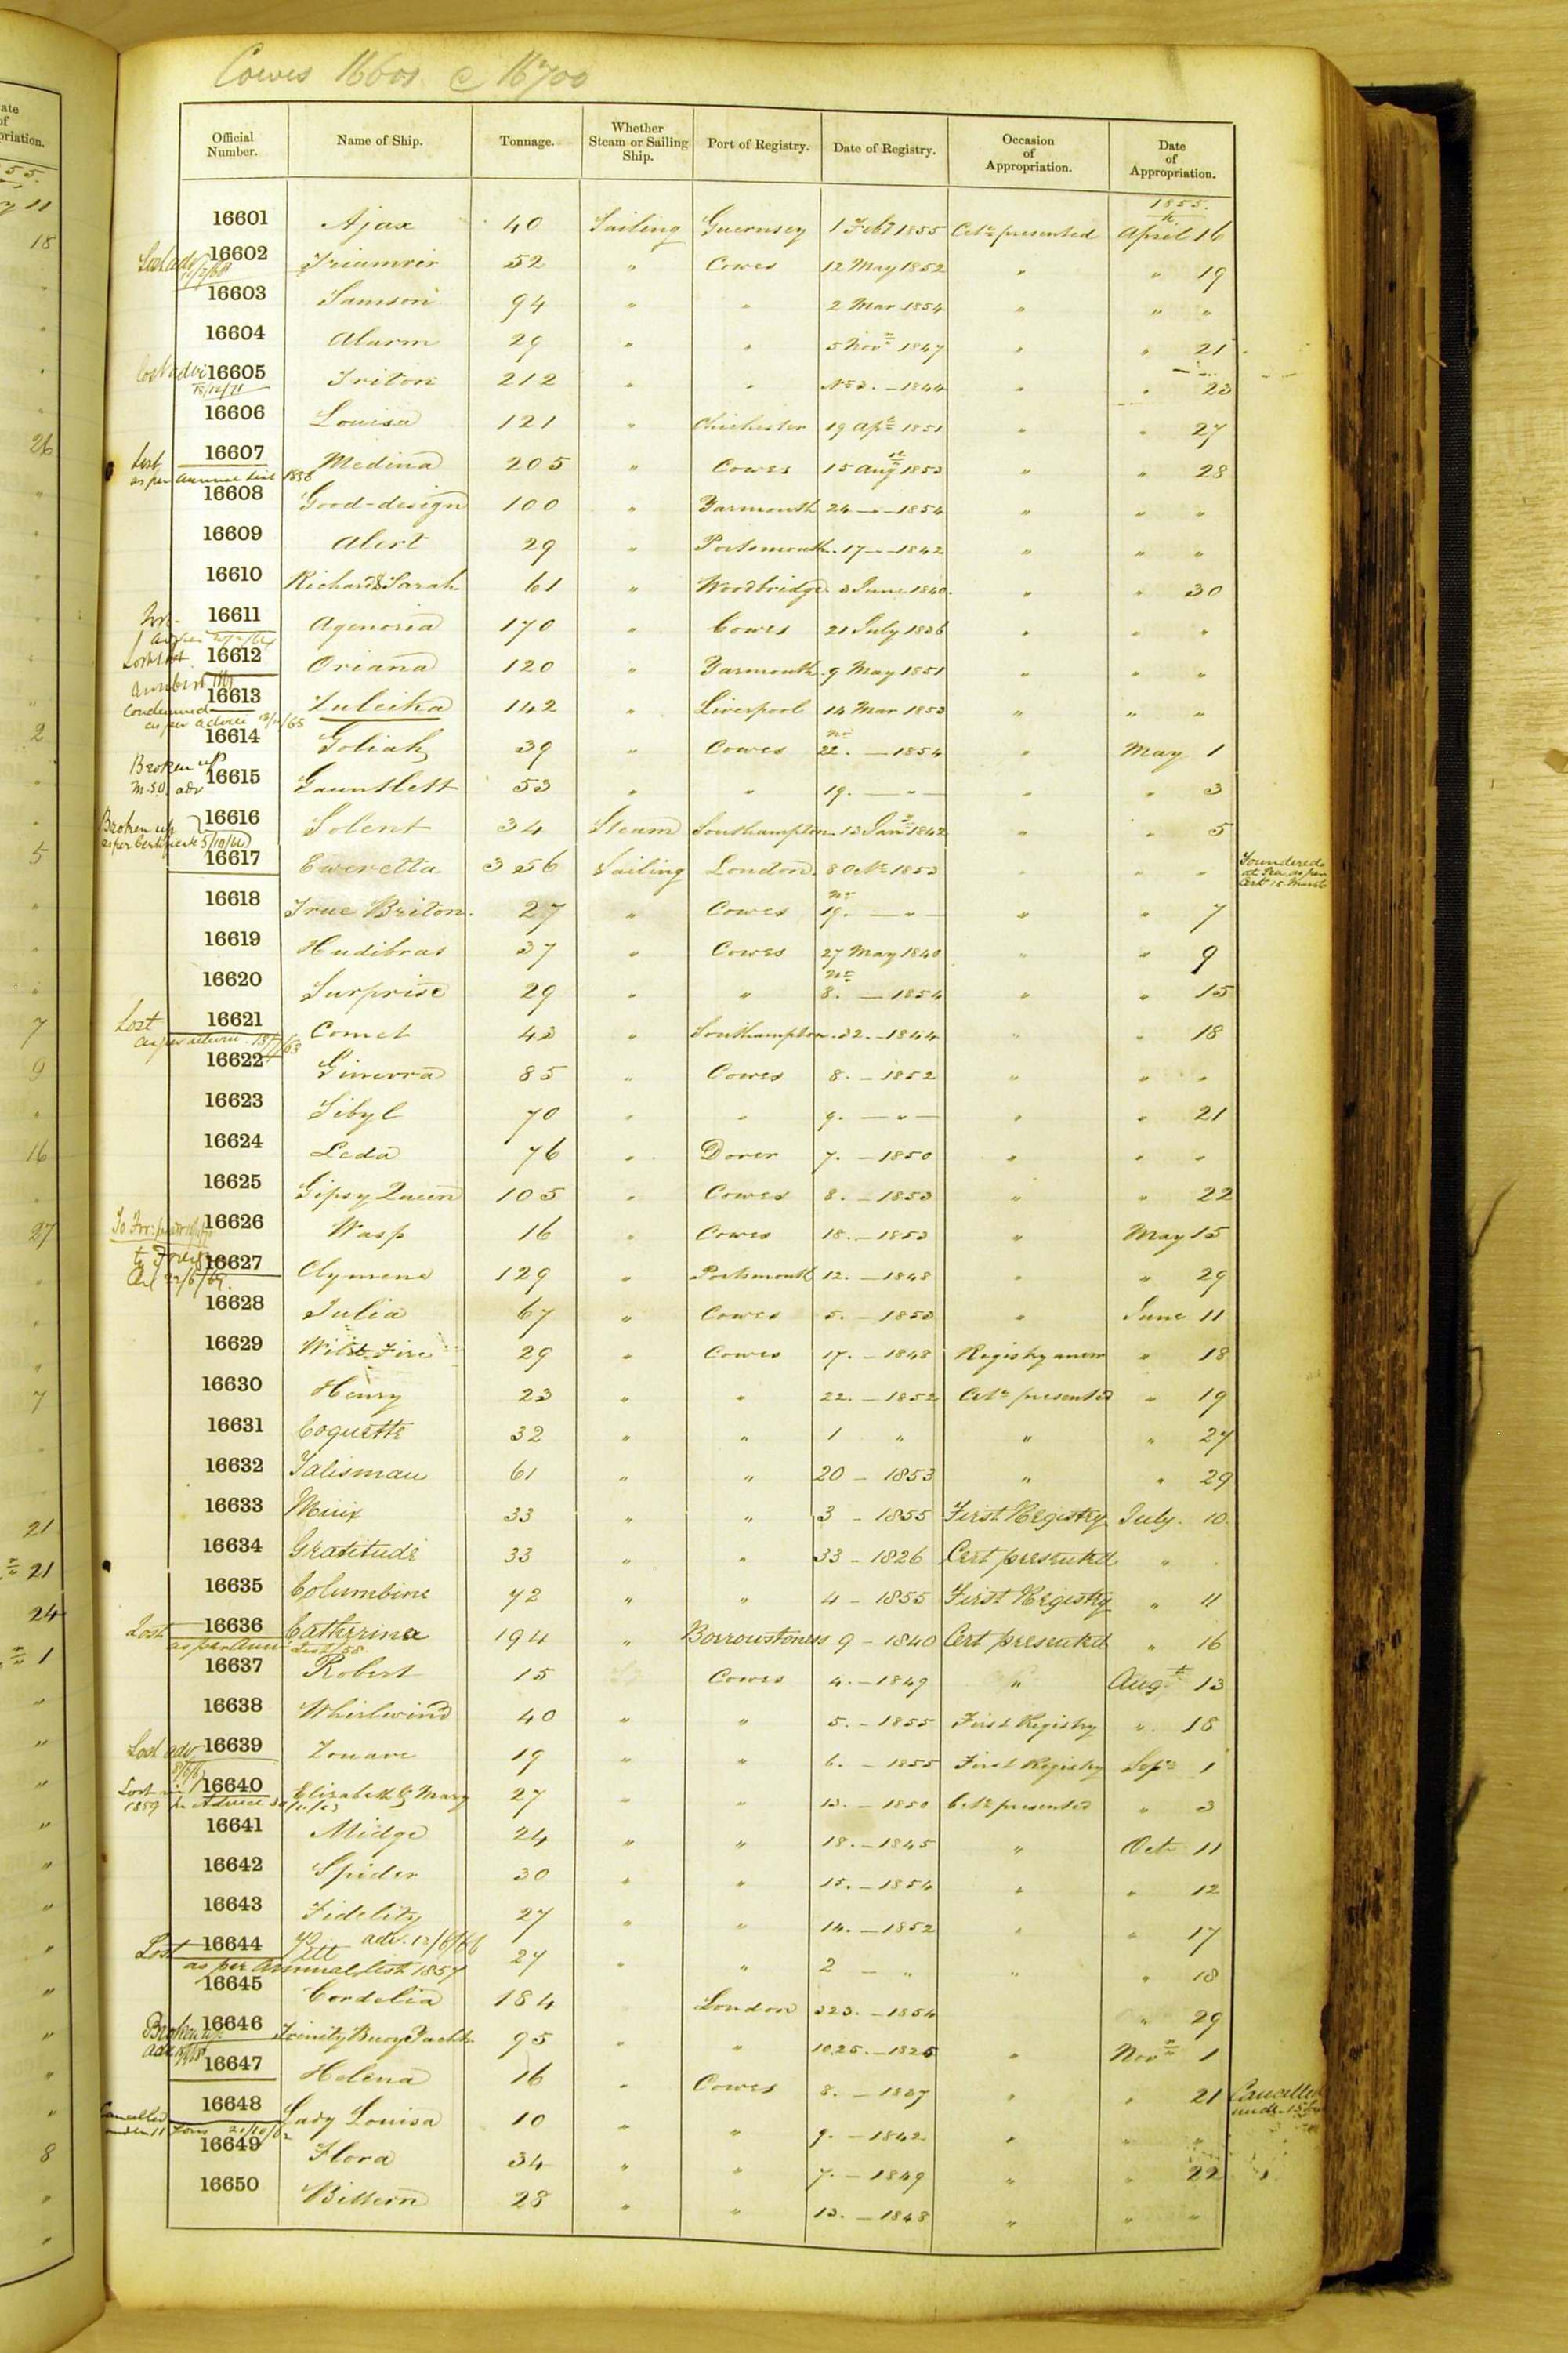 Cowes 16601 @ 16700
Official Number. Name of Ship. Tonnage. Whether Steam or Sailing Ship. Port of Registry. Date of Registry. Occasion of Appropriation. Date of Appropriation.
1855.
16601 Ajax 40 Sailing Guernsey 1 Feby 1855 Certe presented April 16
16602 Triumvir 52 " Cowes 12 May 1852 " " 19
16603 Samson 94 " " 2 Mar 1854 " " "
16604 Alarm 29 " " 5 Novr 1847 " " 21
16605 Triton 212 " " No 2. - 1844 " " 23
16606 Louisa 121 " Chichester 19 Apl 1851 " " 27
Lost 16607 Medina 205 " Cowes 15 Augt 1853 " " 28
as per annual list 1858
16608 Good-design 100 " Yarmouth 24 - " - 1854 " " "
16609 Alert 29 " Portsmouth 17 - - 1842 " " "
16610 Richard & Sarah 61 " Woodbridge 3 June 1840 " " 30
16611 Agenoria 170 " Cowes 21 July 1836 " " "
16612 Oriana 120 " Yarmouth 9 May 1851 " " "
16613 Zuleika 142 " Liverpool 14 Mar 1853 " " "
Condemned as per advice
16614 Goliah 39 " Cowes No 22. - 1854 " May 1
Broken up
16615 Gauntlett 53 " " 19. - " - " " 3
Broken up 16616 Solent 34 Steam Southampton 13 Jany 1842 " " 5
as per Certificate 5/10/60
16617 Eweretta 356 Sailing London 8 Oct 1853 " " " Foundered at Sea as per Cert
16618 True Briton 27 " Cowes No 19. - " - " " 7
16619 Hudibras 37 " Cowes 27 May 1840 " " 9
16620 Surprise 29 " " No 8. - 1854 " " 15
Lost 16621 Comet 43 " Southampton 32. - 1844 " " 18
as per return
16622 Ginevra 85 " Cowes 8. - 1852 " " "
16623 Sibyl 70 " " 9. - " - " " 21
16624 Leda 76 " Dover 7. - 1850 " " "
16625 Gipsy Queen 105 " Cowes 8. - 1853 " " 22
16626 Wasp 16 " Cowes 18. - 1853 " May 15
16627 Clymene 129 " Portsmouth 12. - 1848 " " 29
16628 Julia 67 " Cowes 5. - 1853 " June 11
16629 Wild Fire 29 " Cowes 17. - 1848 Registry anew " 18
16630 Henry 23 " " 22. - 1852 Certe presented " 19
16631 Coquette 32 " " 1 " " " 27
16632 Talisman 61 " " 20 - 1853 " " 29
16633 33 " " 3 - 1855 First Registry July 10
16634 Gratitude 33 " " 33 - 1826 Cert presented "
16635 Columbine 72 " " 4 - 1855 First Registry " 11
Lost 16636 Catherina 194 " Borroustoness 9 - 1840 Cert presented " 16
as per Annl List/58
16637 Robert 15 Cowes 4. - 1849 " Augt 13
16638 Whirlwind 40 " " 5. - 1855 First Registry " 18
Lost adv 16639 Zouave 19 " " 6. - 1855 First Registry Sepr 1
16640 Elizabeth & Mary 27 " " 13. - 1850 Certe presented " 3
Lost in 1859 pr Advice
16641 Midge 24 " " 18. - 1845 " Oct 11
16642 Spider 30 " " 15. - 1854 " " 12
16643 Fidelity 27 " " 14. - 1852 " " 17
Lost 16644 Pitt 27 " " 2 - " " " 18
as per Annual List 1857
16645 Cordelia 184 London 323. - 1854 " 29
Broken up 16646 Trinity Buoy Yacht 95 " " 1025. - 1825 " Novr 1
16647 Helena 16 " Cowes 8. - 1837 " " 21 Cancelled
16648 Lady Louisa 10 " " 9. - 1842 " " "
Cancelled
16649 Flora 34 " " 7. - 1849 " " 22
16650 Bittern 28 " " 13. - 1848 " " "